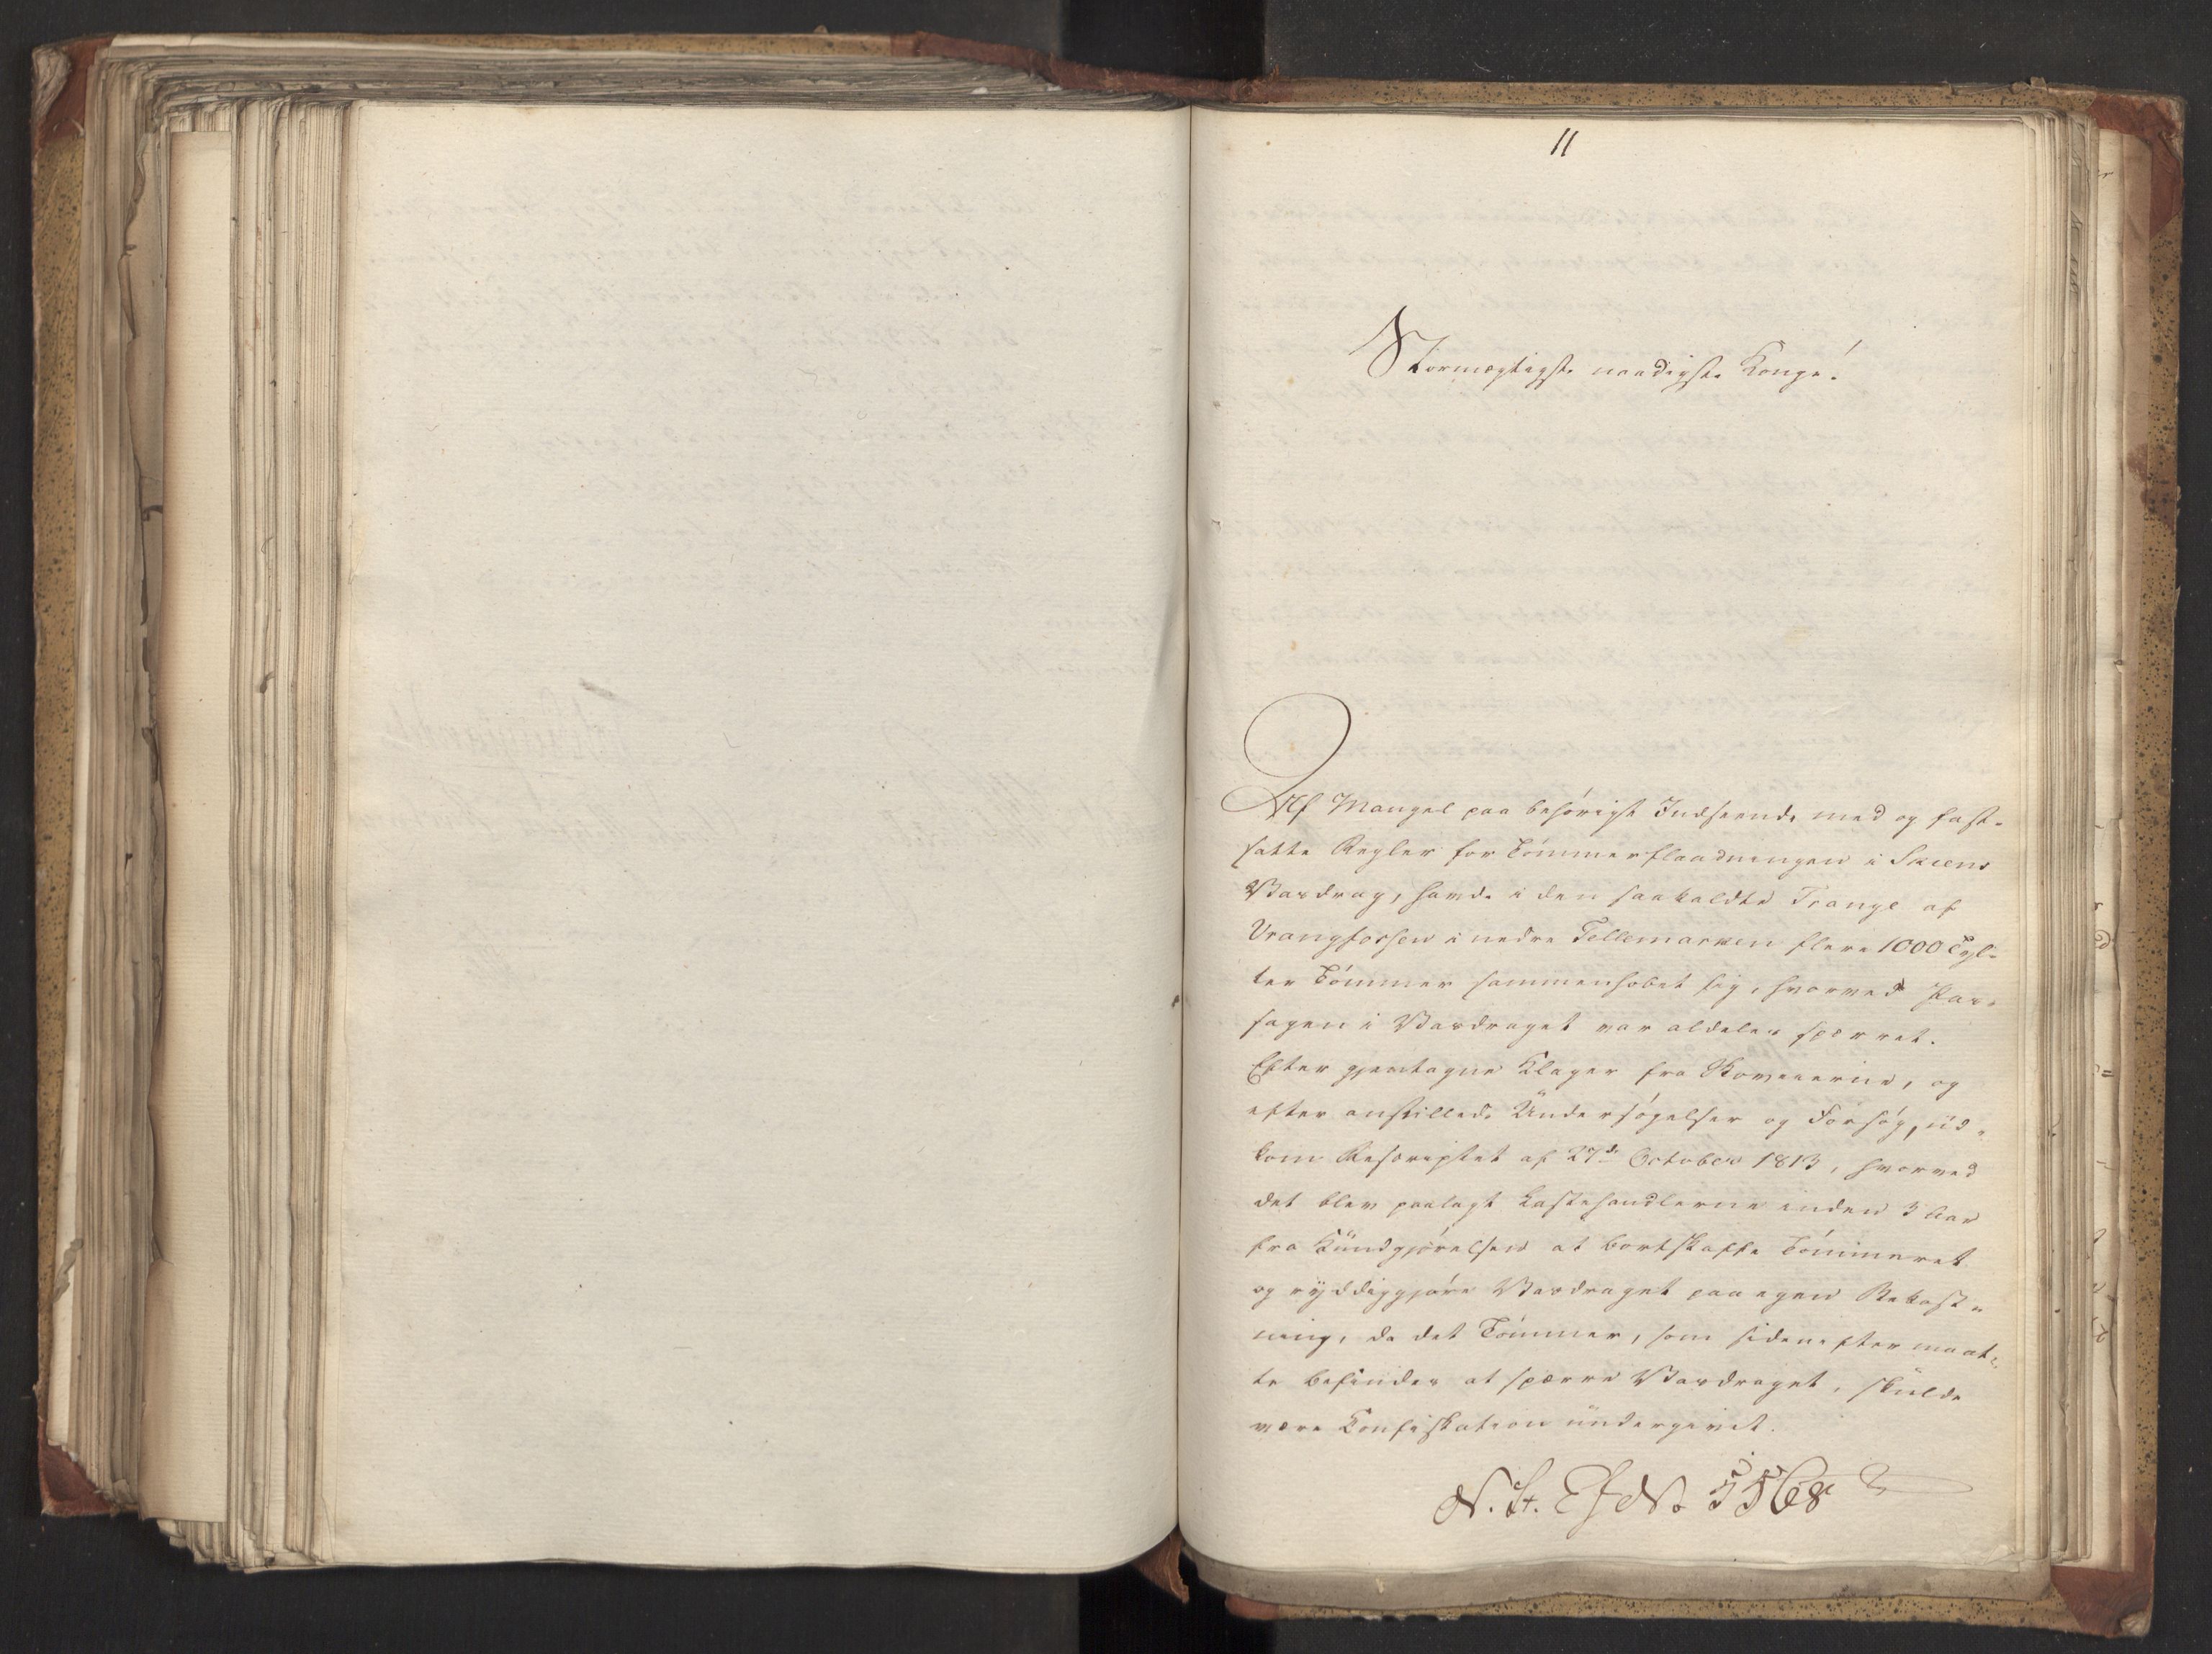 11
Stormægtigste naadigste Konge!
Af Mangel paa behørigt Indseende med og fast-
satte Regler for Tømmerflaadningen i Skiens
Vasdrag, havde i den saakaldte Trange af
Vrangfossen i nedre Tellemarken flere 1000 Tyl-
ter Tømmer sammenhobet sig, hvorved Pas-
sagen i Vasdraget var aldeles spærret.
Efter gjentagne Klager fra Skoveierne, og
efter anstillede Undersøgelser og Forsøg, ud-
kom Rescriptet af 27de October 1813, hvorved
det blev paalagt Lastehandlerne inden 3 Aar
fra Kundgjørelsen at bortskaffe Tømmeret
og ryddiggjøre Vasdraget paa egen Bekost-
ning, da det Tømmer, som sidenefter maat-
te befindes at spærre Vasdraget, skulde
være Confiskation undergivet.
N. St. Ef No 5568